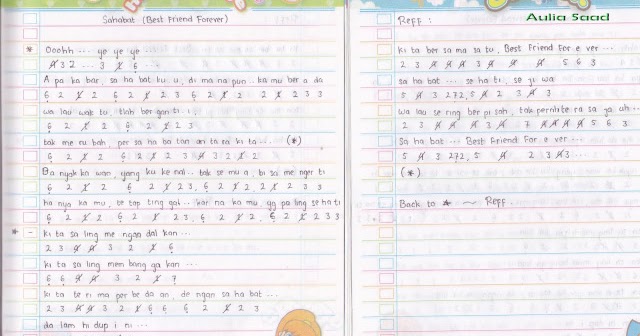 Sahabat (Best Friend Forever)
* Ooohh ... ye ye ye
4̸ 3 2 ... 3 1̸ 6̣ ...
A pa ka bar, sa ha bat ku u, di ma na pun .. ka mu ber a da
6̣ 2 1̸ 2 6̣ 2 1̸ 2 3 6̣ 2 1̸ 2 .. 2 1̸ 2 2 3 3
wa lau wak tu, tlah ber gan ti .. i,
6̣ 2 1̸ 2 6̣ 2 1̸ 2 3
tak me ru bah, per sa ha ba tan an ta ra ki ta ... (*)
6̣ 2 1̸ 2 6̣ 2 1̸ 2 3 4̸ 3 2 1̸ 2
Ba nyak ka wan, yang ku ke nal .. tak se mu a, bi sa me nger ti
6̣ 2 1̸ 2 6̣ 2 1̸ 2 3, 6̣ 2 1̸ 2, 2 1̸ 2 2 3 3
ha nya ka mu, te tap ting gal ... kar na ka mu, yg pa ling se ha ti
6̣ 2 1̸ 2 6̣ 2 1̸ 2 3, 6̣ 2 1̸ 2, 6̣ 2 1̸ 2 3 3
* - ki ta sa ling me ngan dal kan ...
2 3 4̸ 4̸ 3 2 1̸ 6̣
ki ta sa ling mem bang ga kan ...
6̣ 6̣ 4̸ 4̸ 3 2 1̸ 7̣
ki ta te ri ma per be da an, de ngan sa ha bat ...
2 3 4̸ 4̸ 3 2 1̸ 6̣ 6̣ 6̣ 2 1̸ 2 3
da lam hi dup i ni ...
Aulia Saad
Reff :
ki ta ber sa ma sa tu, Best Friend For e ver ...
2 3 4̸ 4̸ 4̸ 3 4̸ 4̸ 4̸ 5 6 3
sa ha bat ... se ha ti, se ji wa
5 4̸ 3 2 7̣ 2, 5 4̸ 2 3 4̸ 3
wa lau se ring ber pi sah, tak per nh te ra sa ja uh ...
2 3 4̸ 4̸ 4̸ 3 4̸ 7̣ 4̸ 4̸ 4̸ 4̸ 5 6 3
Sa ha bat ... Best Friend For e ver ...
5 4̸ 3 2 7̣ 2, 5 4̸ 2 3 4̸ 3 ...
(*)
Back to * ~ Reff.